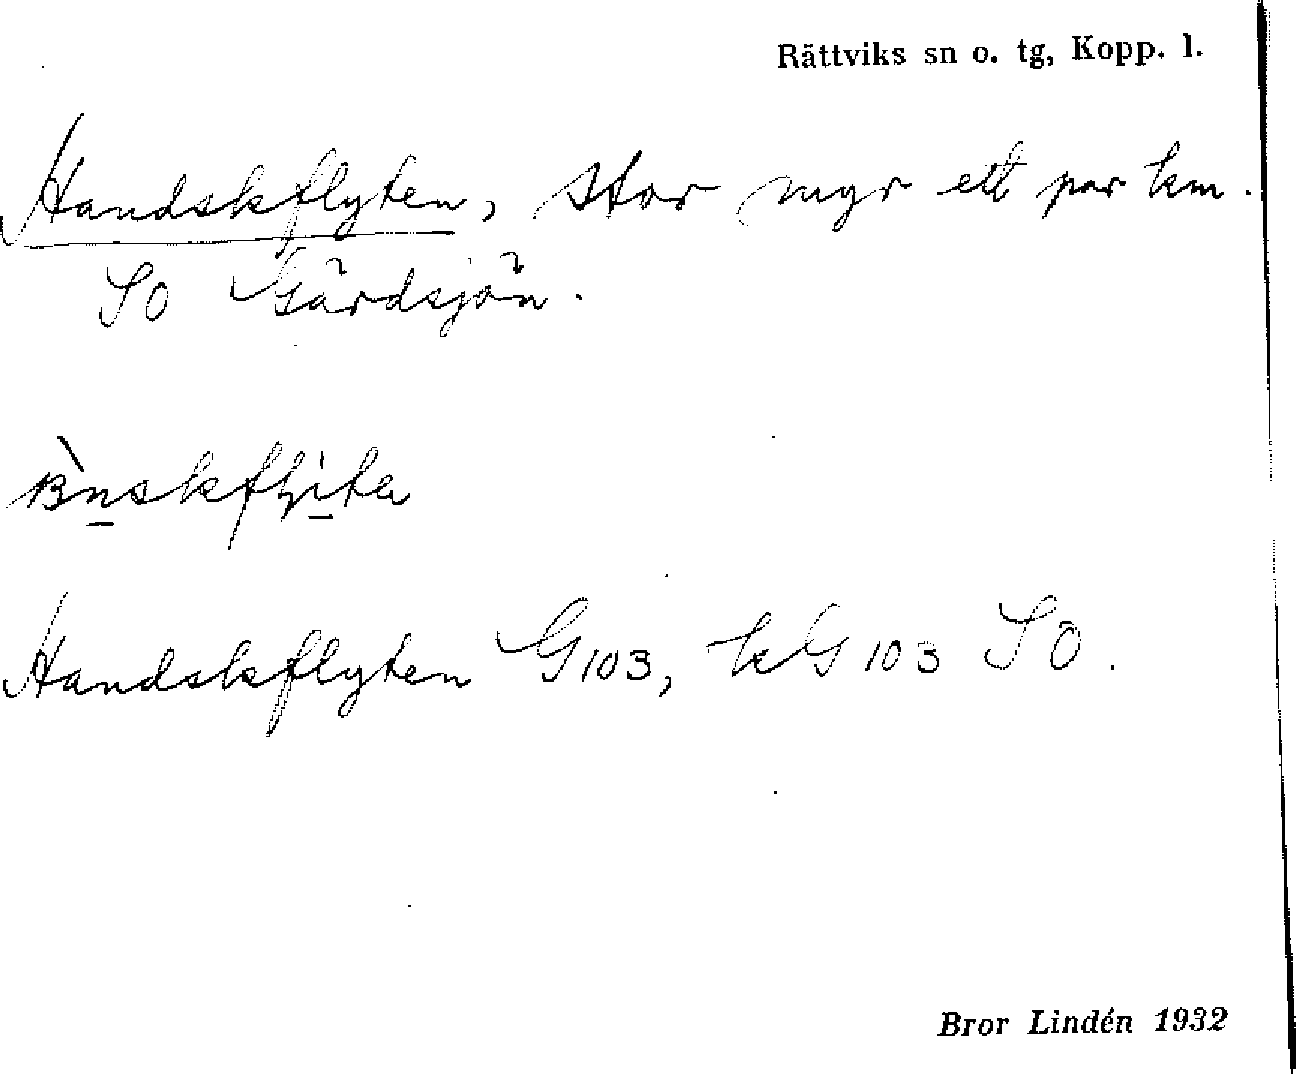 Rättviks sn o. tg, Kopp. l.
Handskflyten, stor myr ett par km.
SO Gärdsjön.
Handskflyten G103, kG103 SO.
Bror Lindén 1932